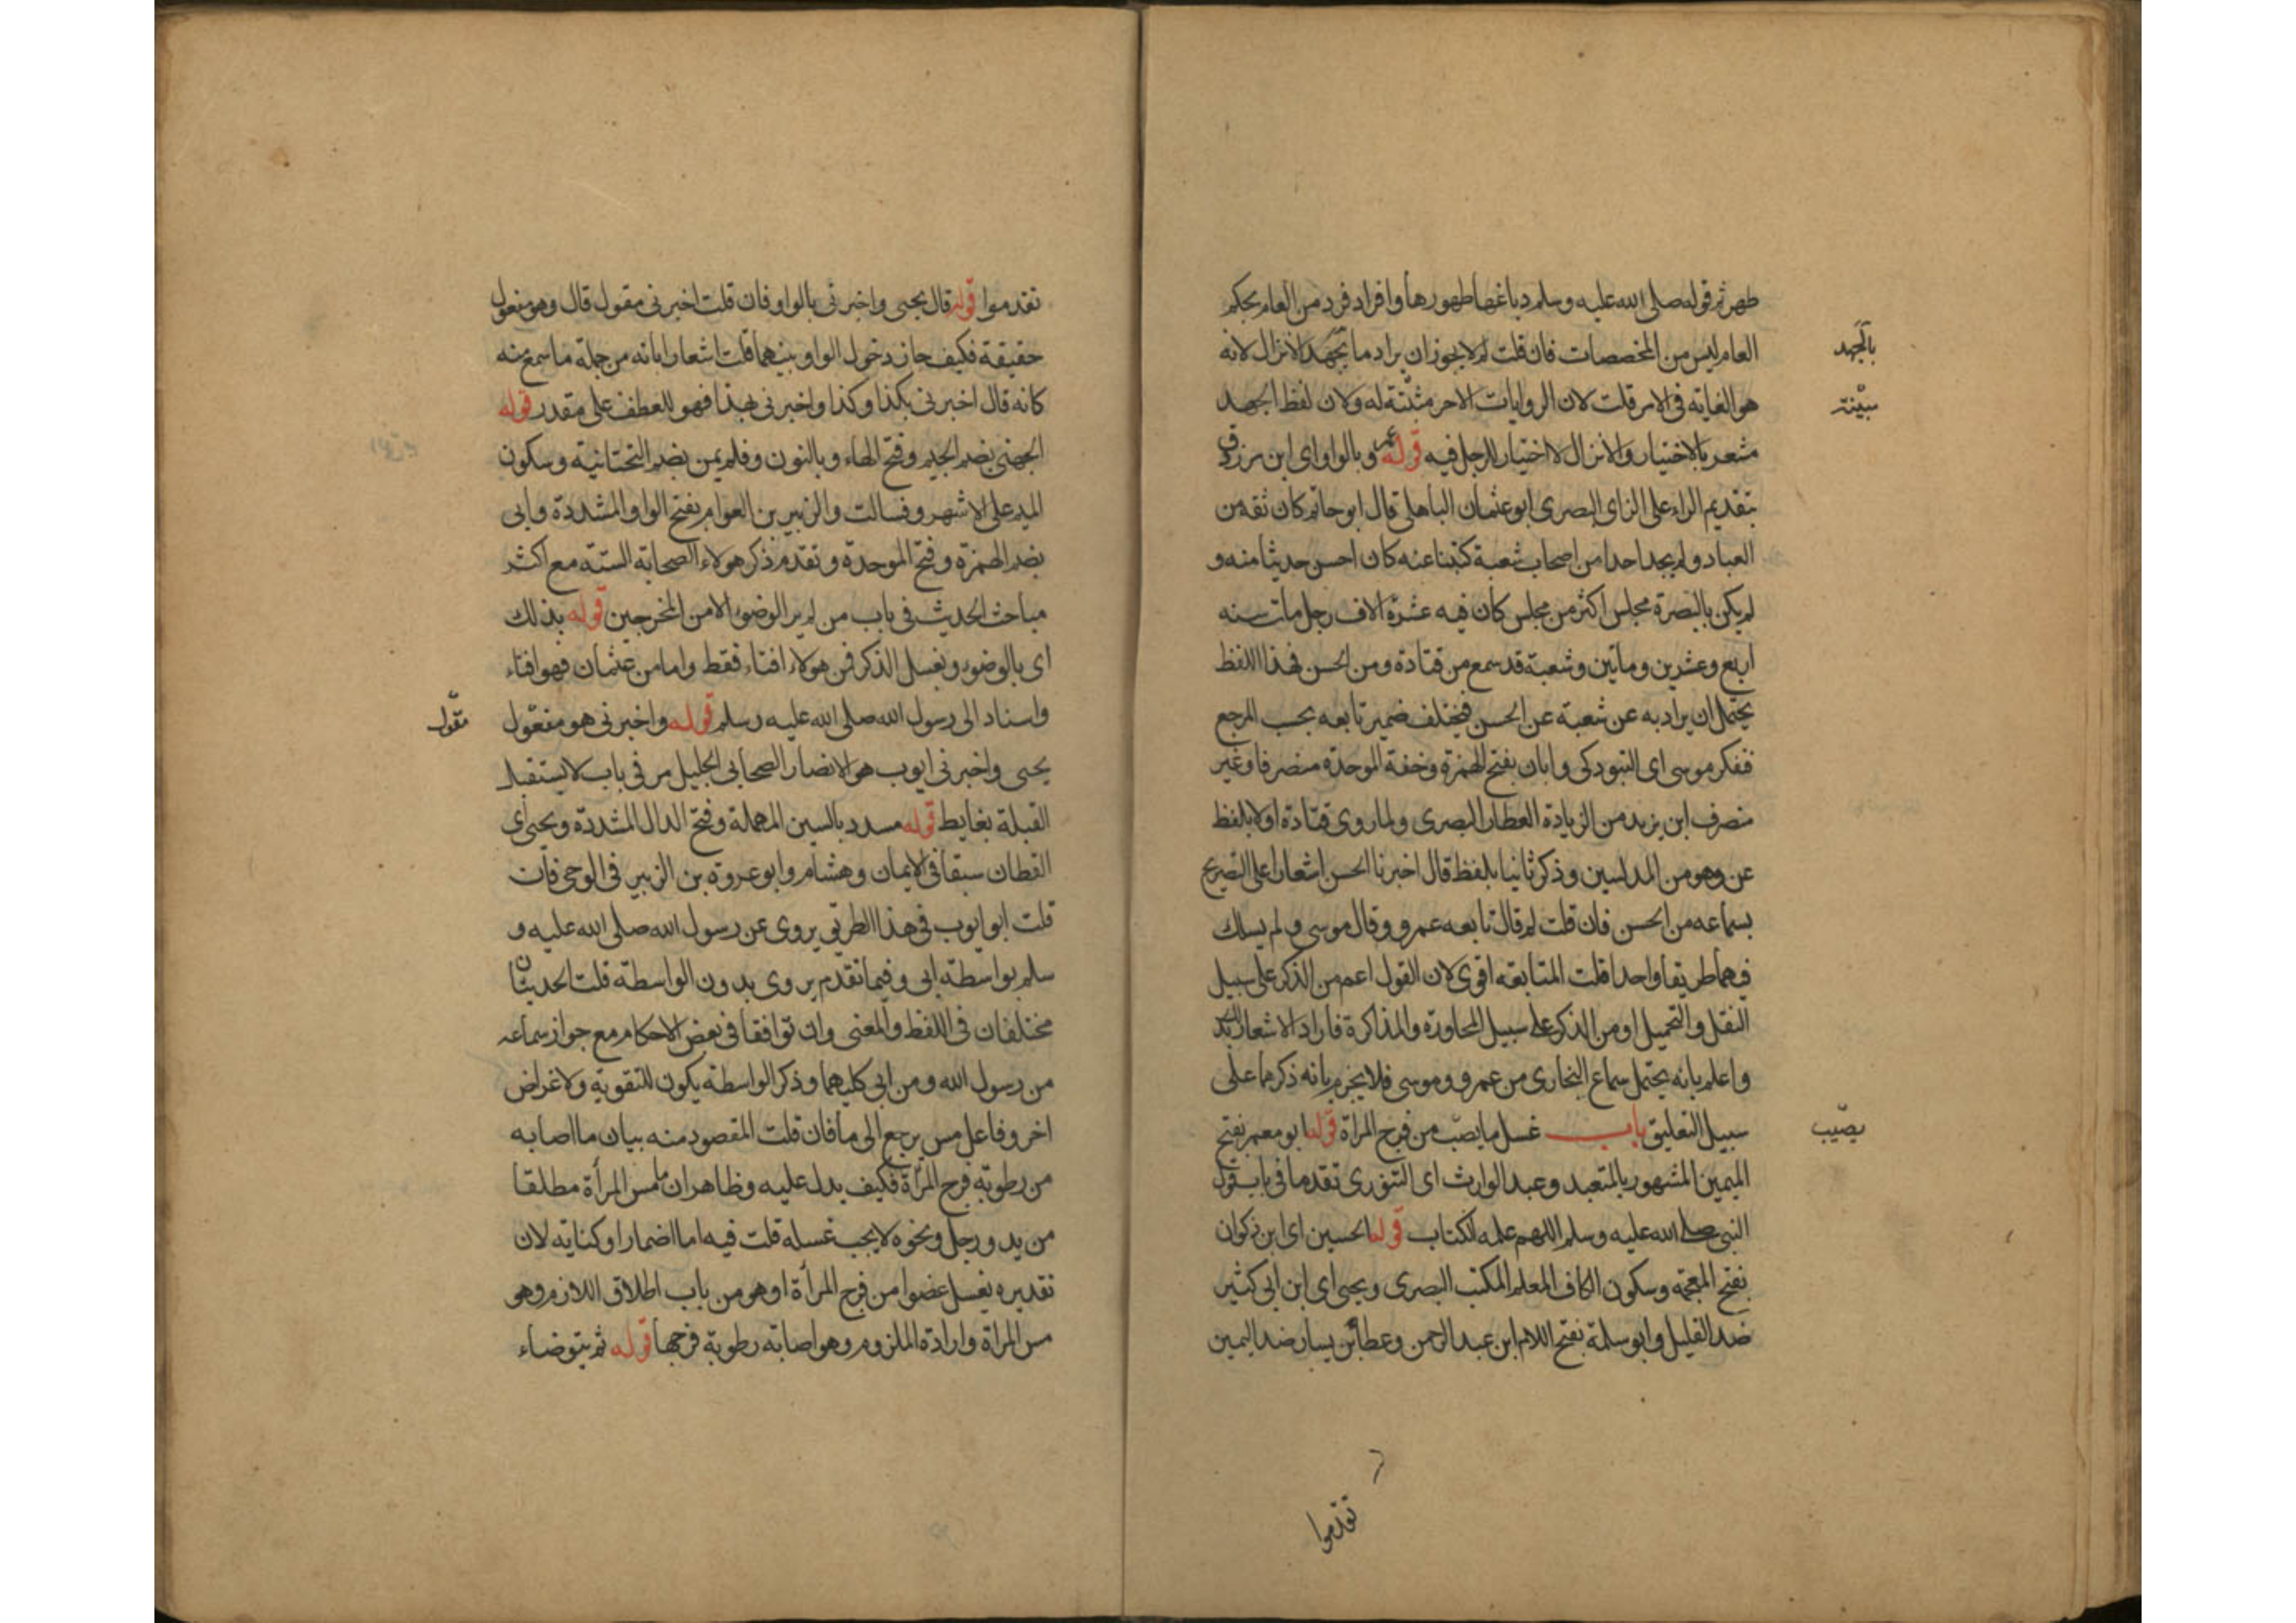 طهر ثم قوله صلى الله عليه وسلم دباغها طهورها وافراد فرد من العام بحكم
العام ليس من المخصصات فان قلت لم لا يجوز ان يراد ما يجهد الانزال لانه
بالجهد
هو الغاية فى الامر قلت لان الروايات الاخر مثبتة له ولان لفظ الجهد
مبيّنة
مشعر بالاختيار والانزال لا اختيار للرجل فيه قوله عمرو بالواو اى ابن مرزوق
بتقديم الراء على الزاى البصرى ابو عثمان الباهلى قال ابو حاتم كان ثقة من
العباد ولم يجد احدا من اصحاب شعبة كتبنا عنه كان احسن حديثا منه و
لم يكن بالبصرة مجلس اكثر من مجلس كان فيه عشرة الاف رجل مات سنه
اربع وعشرين وماتين وشعبة قد سمع من قتادة ومن الحسن فهذا اللفظ
يحتمل ان يراد به عن شعبة عن الحسن فيختلف ضمير تابعه بحسب المرجع
ففكر موسى اى التبوذكى وابان بفتح الهمزة وخفة الموحدة منصرفا وغير
منصرف ابن يزيد من الزيادة العطار البصرى ولما روى قتادة اولا بلفظ
عن وهو من المدلسين وذكر ثانيا بلفظ قال اخبرنا الحسن اشعارا على التصريح
بسماعه من الحسن فان قلت لم قال تابعه عمرو وقال موسى و لم يسلك
فيهما طريقا واحدا قلت المتابعة اقوى لان القول اعم من الذكر على سبيل
النقل والتحميل او من الذكر على سبيل المحاورة والمذاكرة فاراد الاشعار بذلك
واعلم بانه يحتمل سماع البخارى من عمرو وموسى فلا يجزم بانه ذكرهما على
سبيل التعليق باب غسل ما يصيب من فرج المراة قوله ابو معمر بفتح
يصيب
الميمين المشهور بالمتعبد وعبد الوارث اى التنورى تقدما فى باب قول
النبى صلى الله عليه وسلم اللهم علمه الكتاب قوله الحسين اى ابن ذكوان
بفتح المعجمة وسكون الكاف المعلم المكتب البصرى ويحيى اى ابن ابى كثير
ضد القليل وابو سلمة بفتح اللام ابن عبد الرحمن وعطاء بن يسار ضد اليمين
تقدموا
تقدموا قوله قال يحيى واخبرنى بالواو فان قلت اخبرنى مقول قال وهو مفعول
حقيقة فكيف جاز دخول الواو بينهما قلت اشعارا بانه من جملة ما سمع منه
كانه قال اخبرنى بكذا وكذا واخبرنى بهذا فهو للعطف على مقدر قوله
الجهنى بضم الجيم وفتح الهاء وبالنون وفلم يمن بضم التحتانية وسكون
الميم على الاشهر وفسالت والزبير بن العوام بفتح الواو المشددة وابى
بضم الهمزة وفتح الموحدة وتقدم ذكر هولاء الصحابة الستة مع اكثر
مباحث الحديث فى باب من لم ير الوضوء الا من المخرجين قوله بذلك
اى بالوضوء وبغسل الذكر فمن هولاء افتاء فقط واما من عثمان فهو افتاء
واسناد الى رسول الله صلى الله عليه وسلم قوله واخبرنى هو مفعول
مقول
يحيى واخبرنى ايوب هو الانصار الصحابى الجليل مر فى باب لا يستقبل
القبلة بغايط قوله مسدد بالسين المهملة وفتح الدال المشددة ويحيى اى
القطان سبقا فى الايمان وهشام وابو عروة بن الزبير فى الوحى فان
قلت ابو ايوب فى هذا الطريق يروى عن رسول الله صلى الله عليه و
سلم بواسطة ابى وفيما تقدم يروى بدون الواسطة قلت الحديثان
مختلفان فى اللفظ والمعنى وان توافقا فى بعض الاحكام مع جواز سماعه
من رسول الله ومن ابى كليهما وذكر الواسطة يكون للتقوية ولاغراض
اخر وفاعل مس يرجع الى ما فان قلت المقصود منه بيان ما اصابه
من رطوبة فرج المراة فكيف يدل عليه وظاهر ان ما مس المرأة مطلقا
من يد ورجل ونحوه لا يجب غسله قلت فيه اما اضمار او كناية لان
تقديره يغسل عضوا من فرج المرأة او هو من باب اطلاق اللازم وهو
مس المراة وارادة الملزوم وهو اصابة رطوبة فرجها قوله ثم يتوضاء